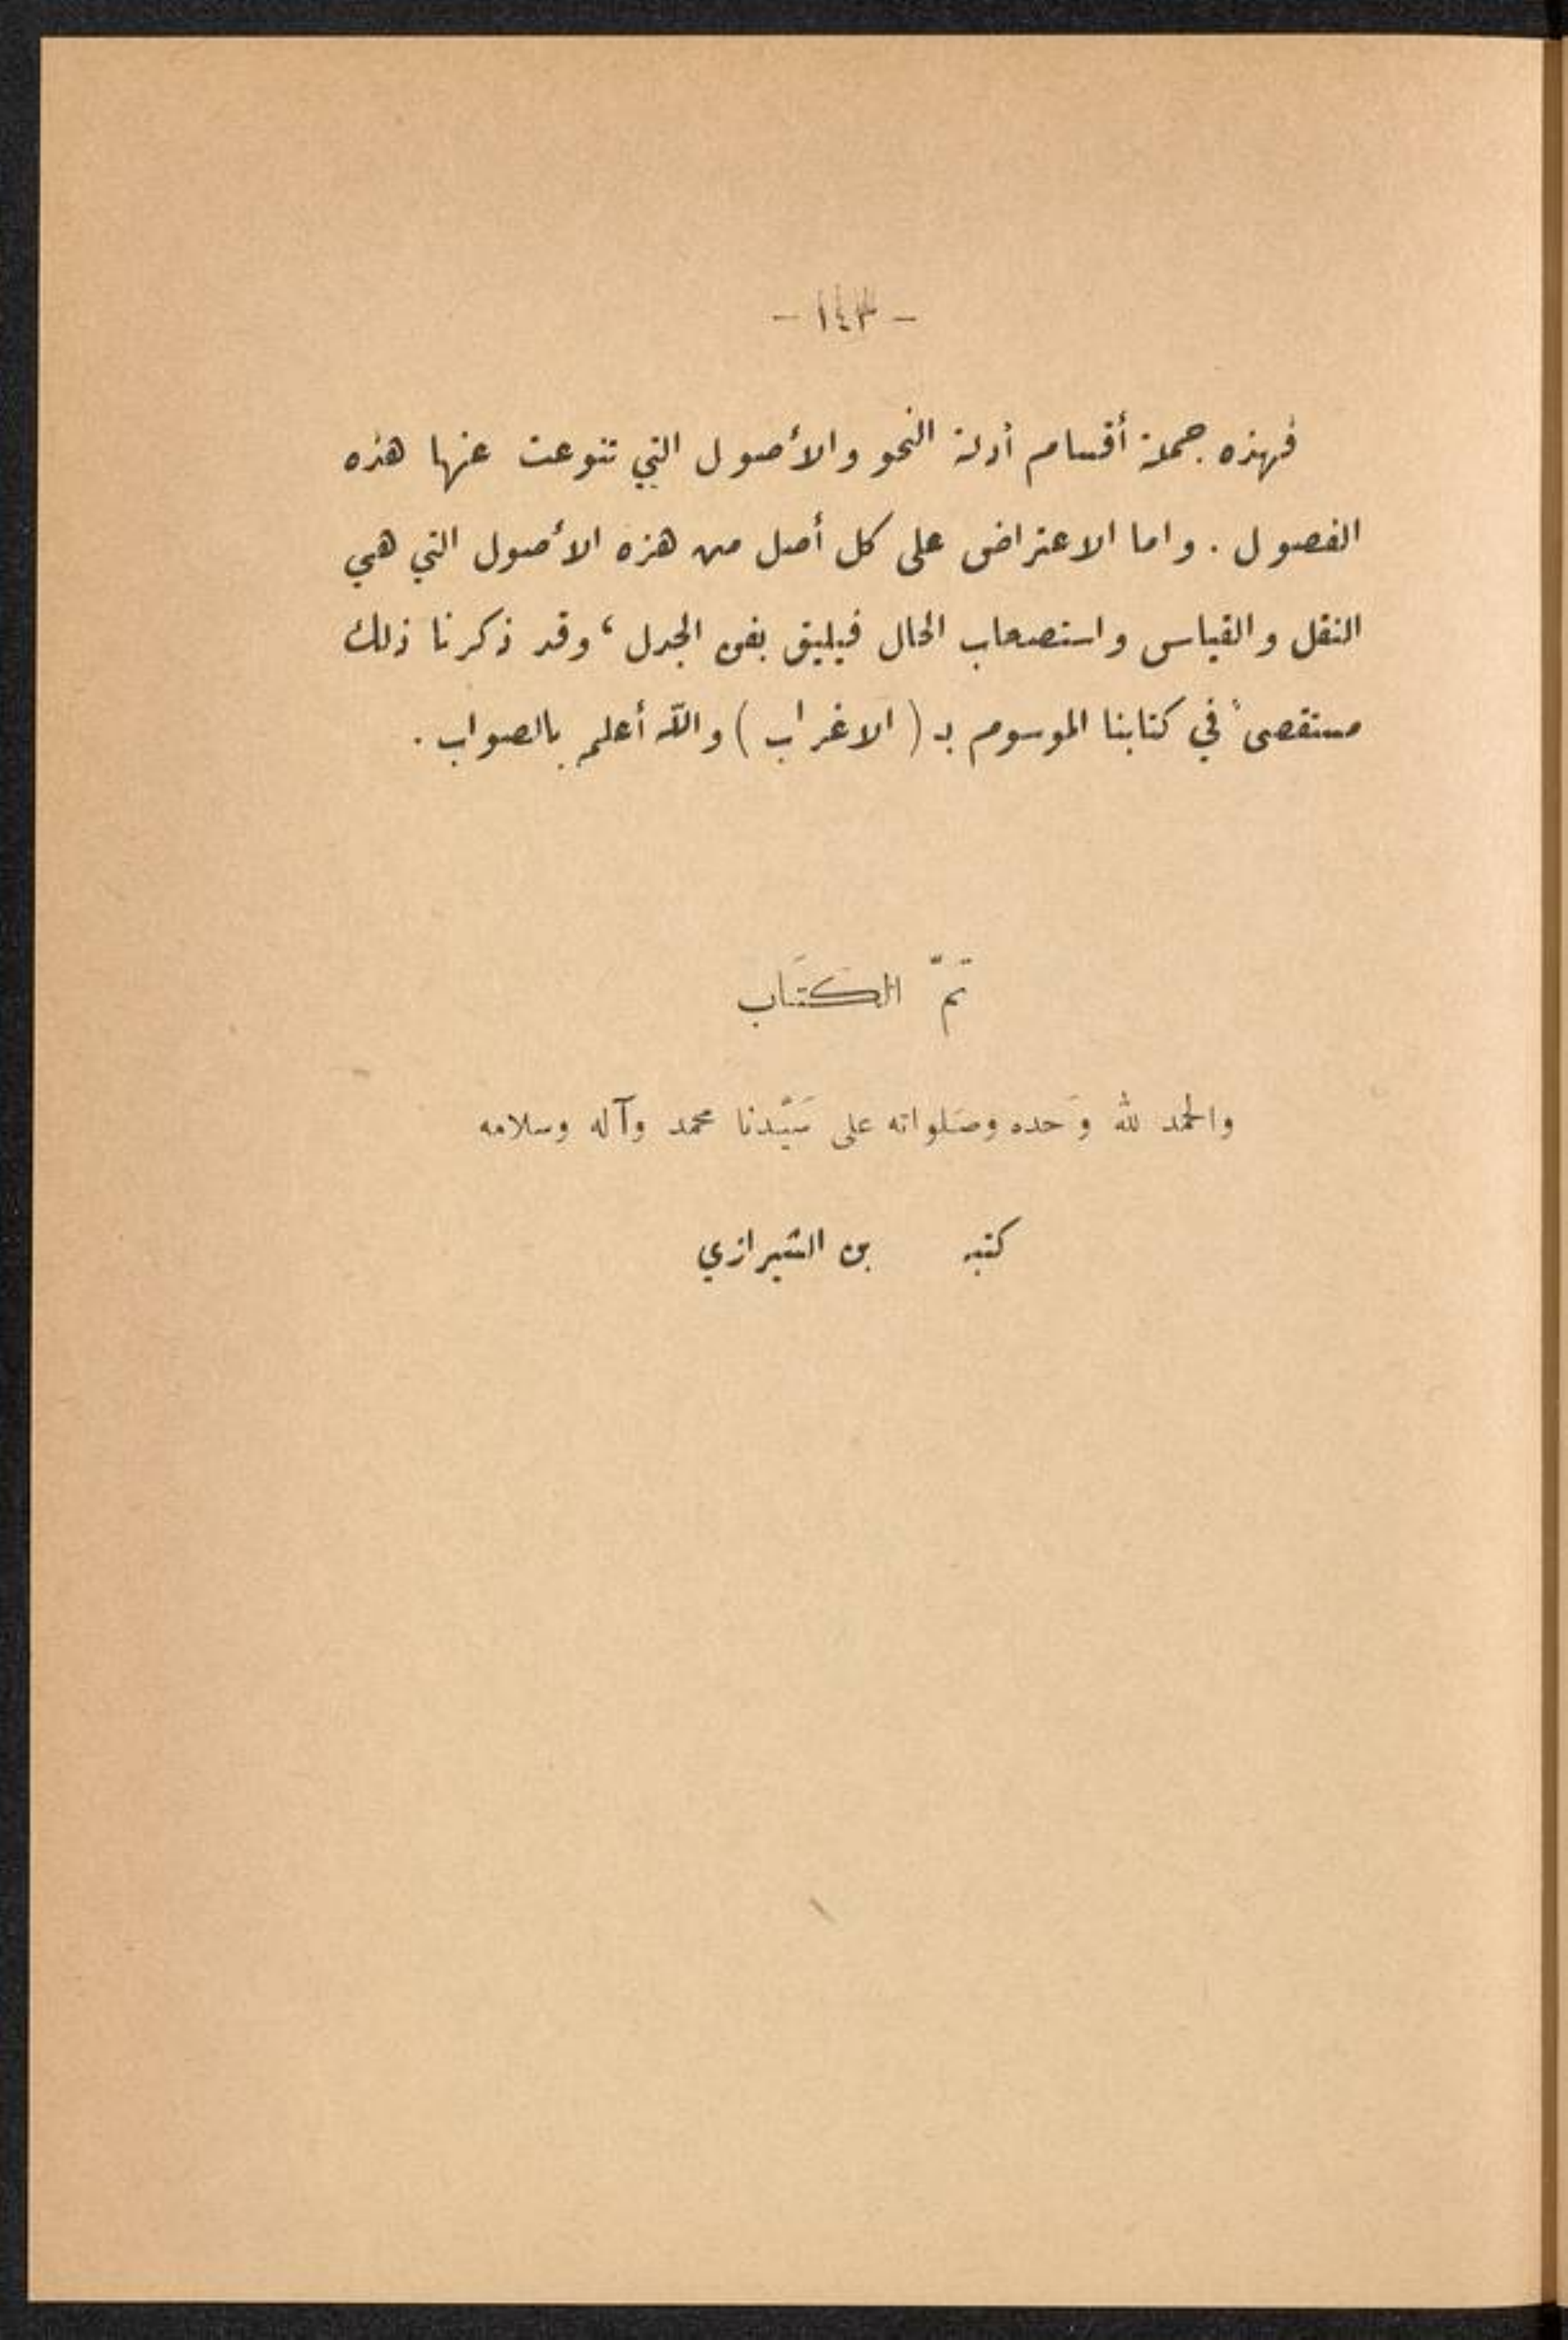 - ١٤٣ -
فهذه جملة أقسام أدلة النحو والأصول التي تنوعت عنها هذه
الفصول . واما الاعتراض على كل أصل من هذه الأصول التي هي
النقل والقياس واستصحاب الحال فيليق بفن الجدل ، وقد ذكرنا ذلك
مستقصىً في كتابنا الموسوم بـ ( الاغراب ) والله أعلم بالصواب .
تَمَّ الكتَاب
والحمد لله وَحده وصَلواته على سَيّدنا محمد وآله وسلامه
كتبه بن الشيرازي